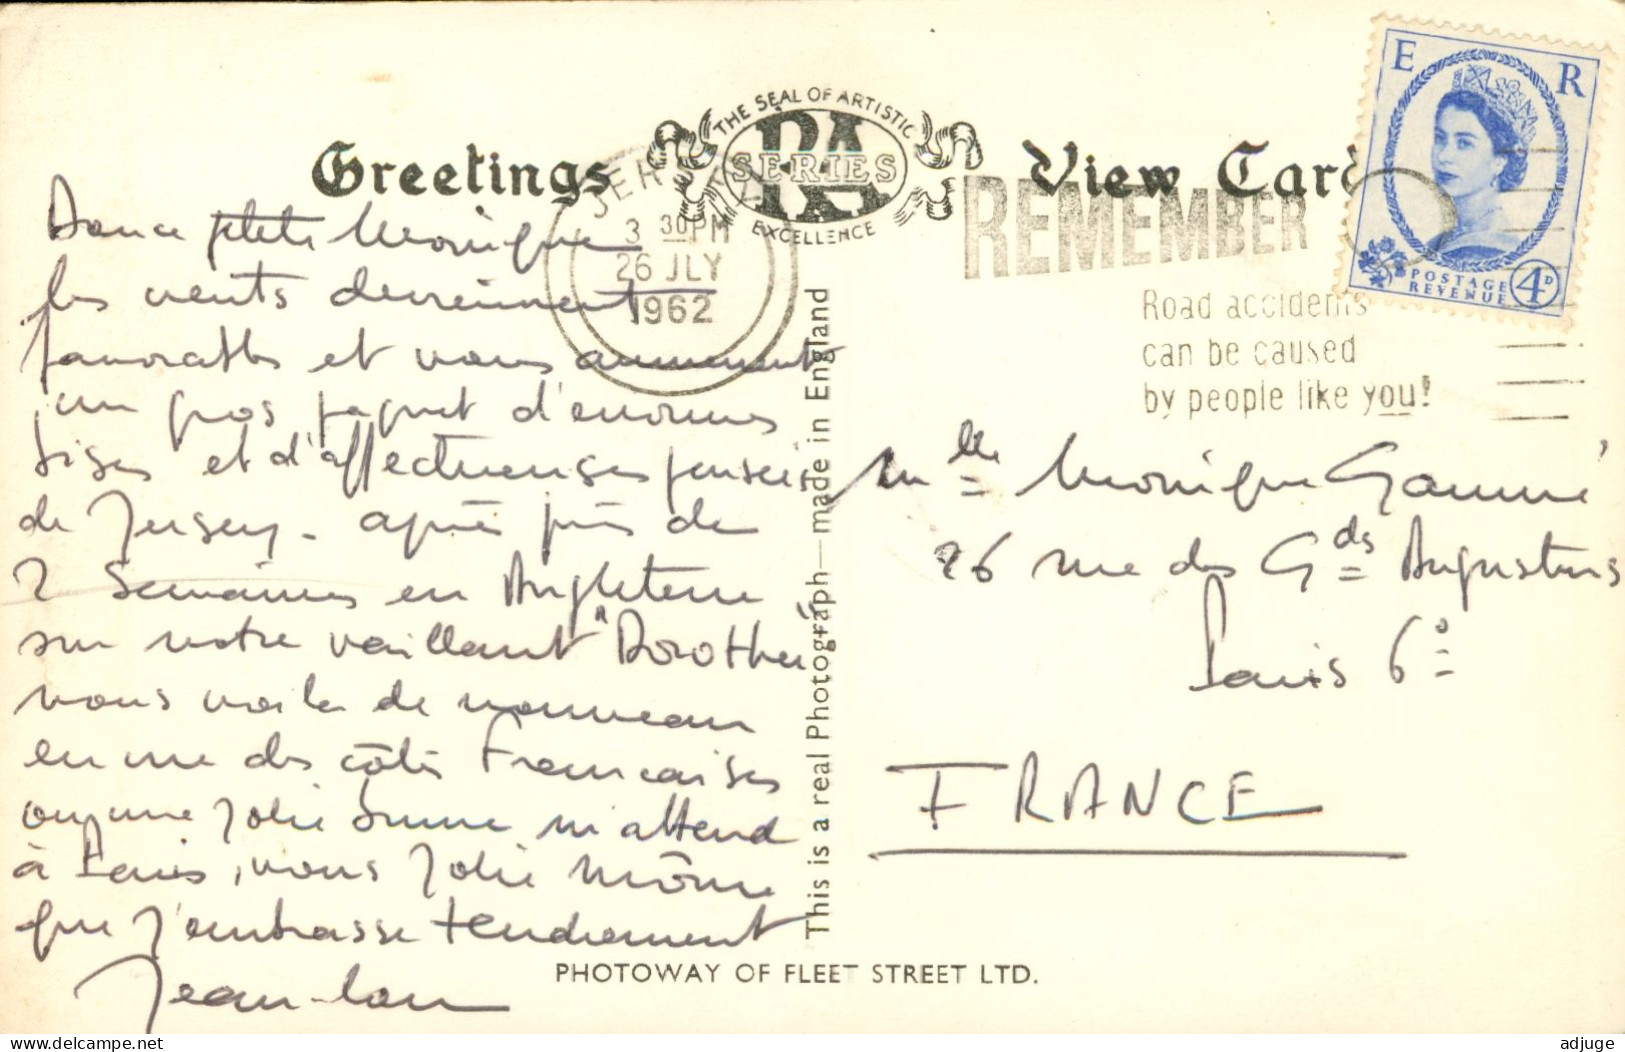 Greetings
THE SEAL OF ARTISTIC
RA
SERIES
EXCELLENCE
View Card
JERSEY
3 30PM
26 JLY
1962
REMEMBER
Road accidents
can be caused
by people like you!
E R
POSTAGE
REVENUE
4D
Douce petite Monique
les vents deviennent
favorables et vous amènent
un gros paquet d'énormes
bises et d'affectueuses pensées
de Jersey - après près de
2 semaines en Angleterre
sur notre vaillant "Dorothée"
nous voilà de nouveau
en vue des côtes Françaises
où une jolie môme m'attend
à Paris, vous jolie môme
que j'embrasse tendrement
Jean-Lou
This is a real Photograph—made in England
Mlle Monique
26 rue des Gds Augustins
Paris 6e
FRANCE
PHOTOWAY OF FLEET STREET LTD.
delcampe.net
adjuge